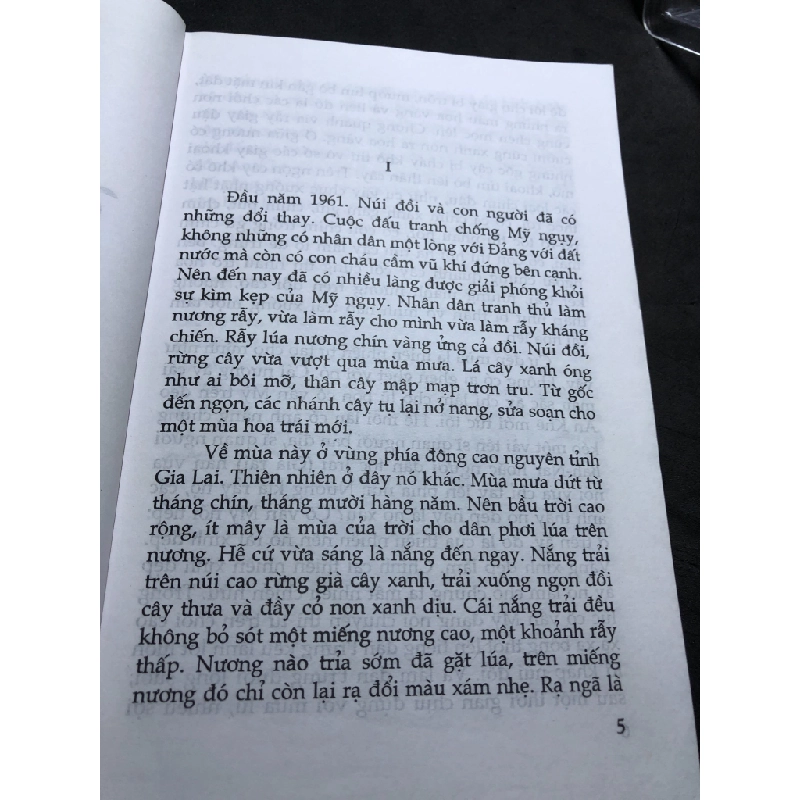 I
Đầu năm 1961. Núi đồi và con người đã có
những đổi thay. Cuộc đấu tranh chống Mỹ ngụy,
không những có nhân dân một lòng với Đảng với đất
nước mà còn có con cháu cầm vũ khí đứng bên cạnh.
Nên đến nay đã có nhiều làng được giải phóng khỏi
sự kìm kẹp của Mỹ ngụy. Nhân dân tranh thủ làm
nương rẫy, vừa làm rẫy cho mình vừa làm rẫy kháng
chiến. Rẫy lúa nương chín vàng ửng cả đồi. Núi đồi,
rừng cây vừa vượt qua mùa mưa. Lá cây xanh óng
như ai bôi mỡ, thân cây mập mạp trơn tru. Từ gốc
đến ngọn, các nhánh cây tụ lại nở nang, sửa soạn cho
một mùa hoa trái mới.
Về mùa này ở vùng phía đông cao nguyên tỉnh
Gia Lai. Thiên nhiên ở đây nó khác. Mùa mưa dứt từ
tháng chín, tháng mười hàng năm. Nên bầu trời cao
rộng, ít mây là mùa của trời cho dân phơi lúa trên
nương. Hễ cứ vừa sáng là nắng đến ngay. Nắng trải
trên núi cao rừng già cây xanh, trải xuống ngọn đồi
cây thưa và đầy cỏ non xanh dịu. Cái nắng trải đều
không bỏ sót một miếng nương cao, một khoảnh rẫy
thấp. Nương nào trỉa sớm đã gặt lúa, trên miếng
nương đó chỉ còn lại rạ đổi màu xám nhẹ. Rạ ngã là
5